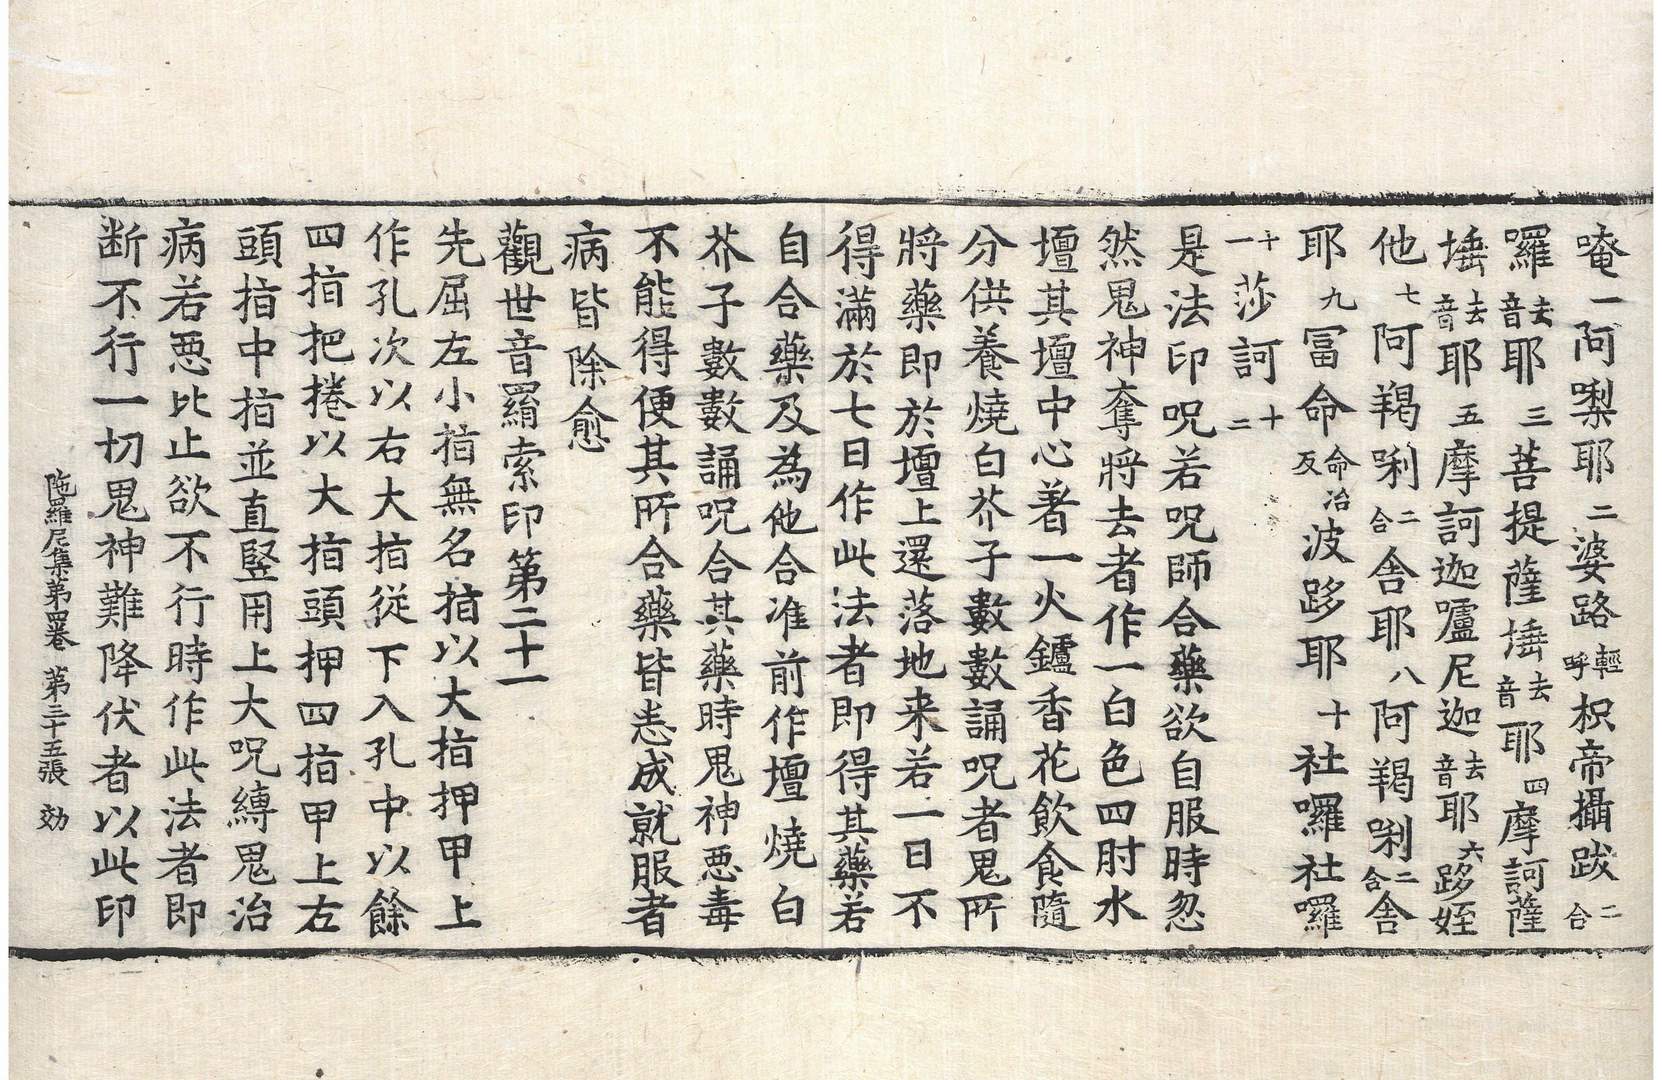 唵一阿㗚耶二婆路輕呼枳帝攝跋二合
囉去音耶三菩提薩埵去音耶四摩訶薩
埵去音耶五摩訶迦嚧尼迦去音耶六跢姪
他七阿羯唎二合舍耶八阿羯唎二合舍
耶九冨命命冶反波跢耶十社囉社囉
十一莎訶十二
是法印呪若呪師合藥欲自服時忽
然鬼神奪將去者作一白色四肘水
壇其壇中心著一火鑪香花飲食隨
分供養燒白芥子數數誦呪者鬼所
將藥即於壇上還落地来若一日不
得滿於七日作此法者即得其藥若
自合藥及為他合准前作壇燒白
芥子數數誦呪合其藥時鬼神惡毒
不能得便其所合藥皆悉成就服者
病皆除愈
觀世音羂索印第二十一
先屈左小指無名指以大指押甲上
作孔次以右大指從下入孔中以餘
四指把捲以大指頭押四指甲上左
頭指中指並直竪用上大呪縛鬼治
病若惡比止欲不行時作此法者即
断不行一切鬼神難降伏者以此印
陁羅尼集第四卷 第三十五張 効